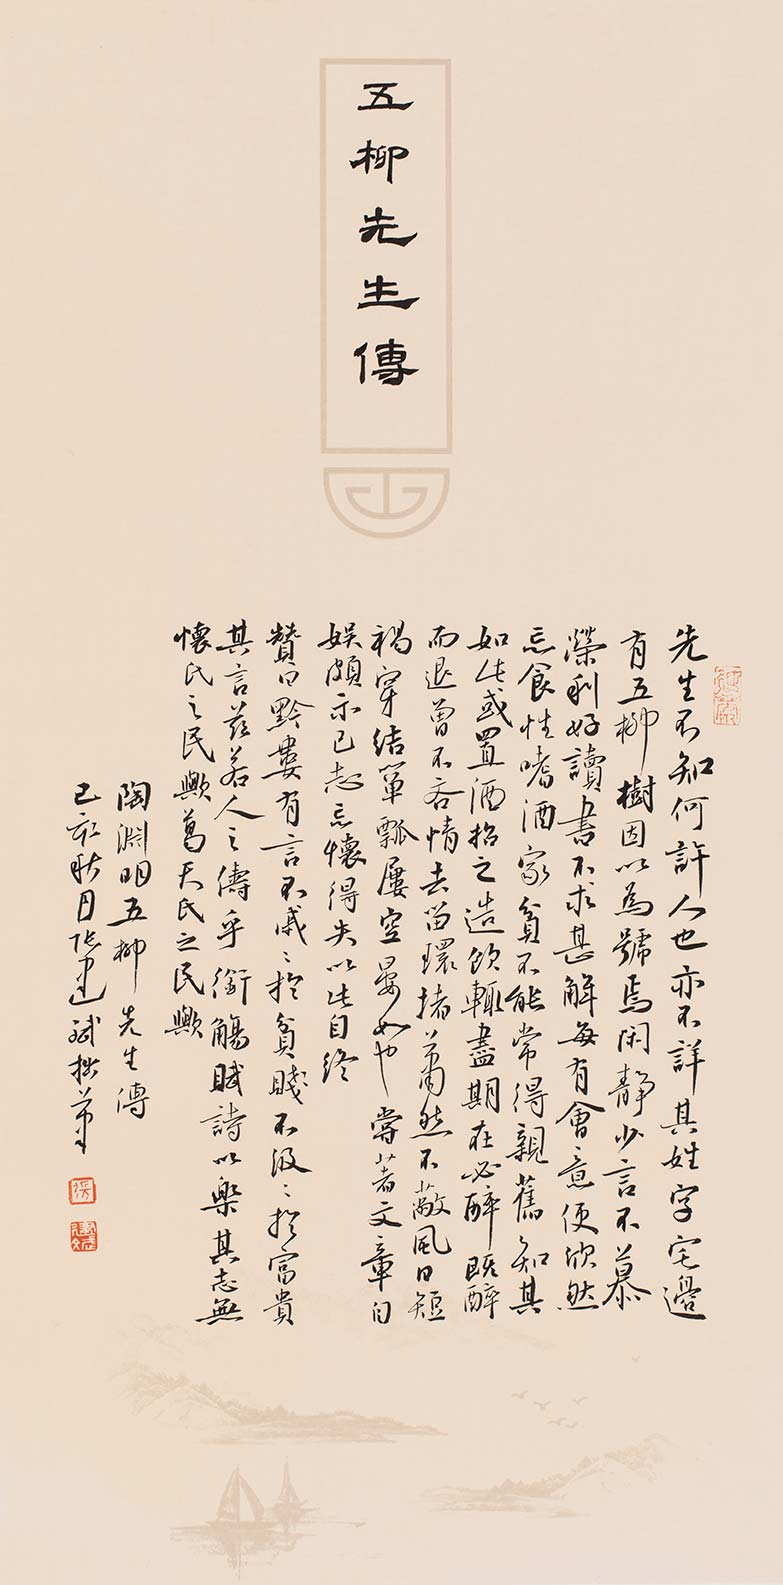 五柳先生傳
先生不知何許人也亦不詳其姓字宅邊
有五柳樹因以為號焉閑靜少言不慕
榮利好讀書不求甚解每有會意便欣然
忘食性嗜酒家貧不能常得親舊知其
如此或置酒招之造飲輒盡期在必醉既醉
而退曾不吝情去留環堵蕭然不蔽風日短
褐穿結簞瓢屢空晏如也嘗著文章自
娛頗示己志忘懷得失以此自終
贊曰黔婁有言不戚〻於貧賤不汲〻於富貴
其言茲若人之儔乎銜觴賦詩以樂其志無
懷氏之民歟葛天氏之民歟
陶淵明五柳先生傳
己亥秋月張建斌拙筆